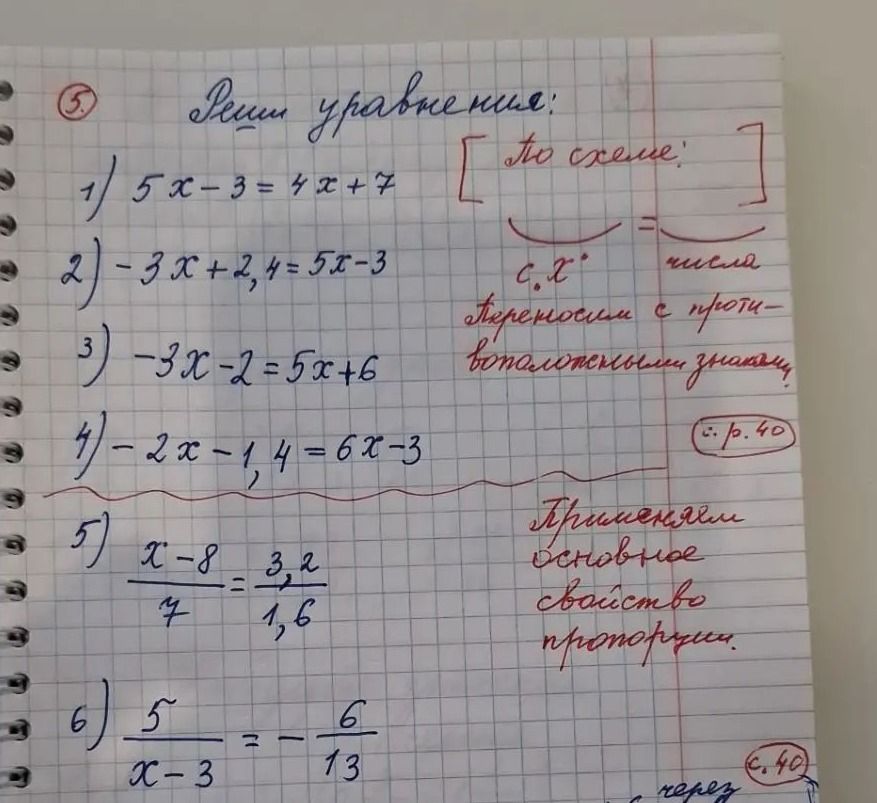 5. Реши уравнения:
1) 5x - 3 = 4x + 7
[По схеме:]
=
с "x" числа
2) - 3x + 2,4 = 5x - 3
Переносим с проти-
воположными знаками.
3) - 3x - 2 = 5x + 6
4) - 2x - 1,4 = 6x - 3
р. 40
5) (x - 8)/7 = 3,2/1,6
Применяем
основное
свойство
пропорции.
6) 5/(x - 3) = - 6/13
с. 40
через